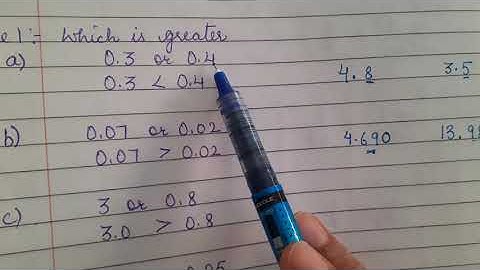 e 1:- Which is greater
a) 0.3 or 0.4
0.3 < 0.4
4.8 3.5
b) 0.07 or 0.02
0.07 > 0.02
4.690 13.9
c) 3 or 0.8
3.0 > 0.8